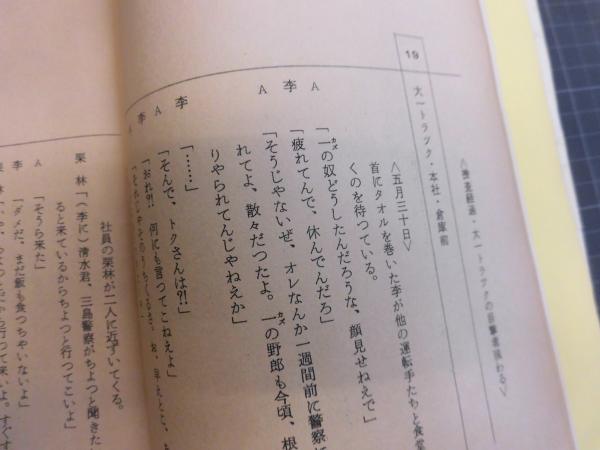 <捜査経過・大一トラックの目撃者現わる>
19 大一トラック・本社・倉庫前
<五月三十日>
首にタオルを巻いた李が他の運転手たちと食堂
くのを待つている。
A 「一の奴どうしたんだろうな、顔見せねえで」
李 「疲れてんで、休んでんだろ」
A 「そうじゃないぜ、オレなんか一週間前に警察に
れてよ、散々だつたよ。一の野郎も今頃、根
りやられてんじゃねえか」
李 「……」
A 「そんで、トクさんは?!」
李 「おれ?! 何にも言つてこねえよ」
A
社員の栗林が二人に近ずいてくる。
栗林 「(李に)清水君、三島警察がちよつと聞きた
ると来ているからちよつと行つてこいよ」
A 「そうら来た」
李 「ダメだ、まだ飯も食つちやいないよ」
栗林